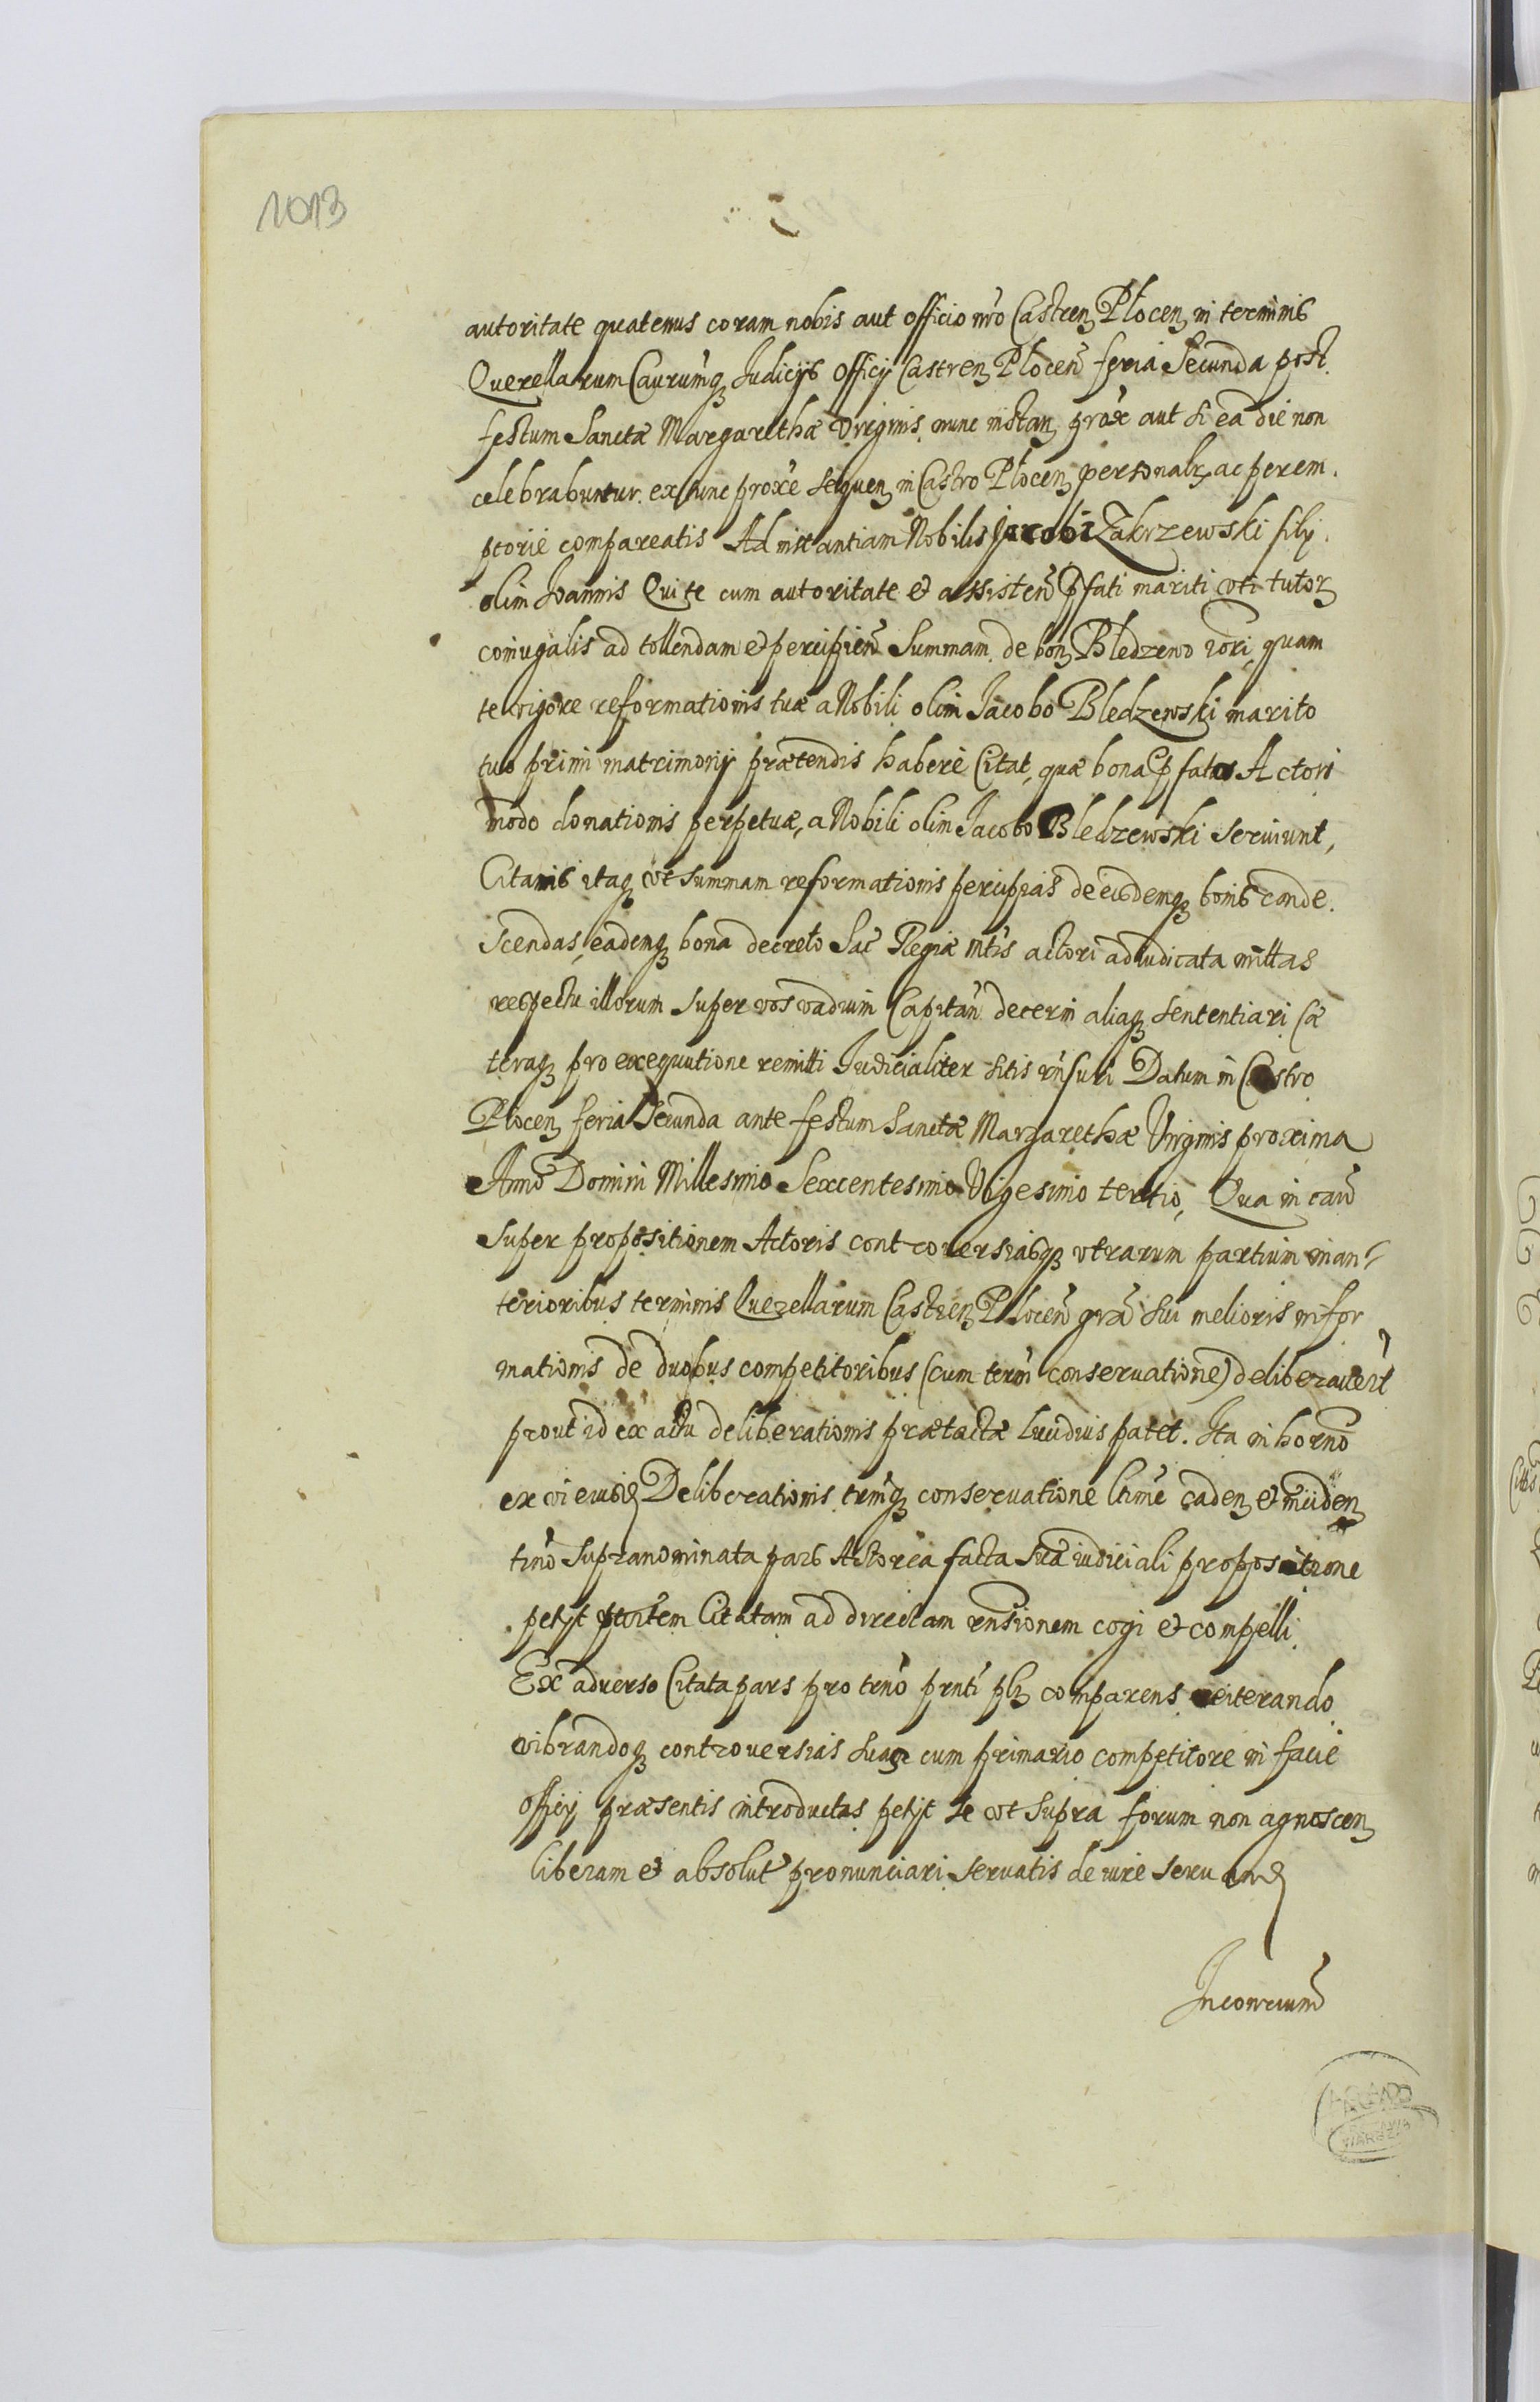 1013
autoritate quatenus coram nobis aut officio nr̃o Castren Plocen in terminis
Querellarum Caurumq Iudicijs Officij Castren Plocen̄ feria Secunda post
festum Sanctæ Margarethæ Virginis nunc instan prox̃ aut si ea die non
celebrabuntur ex tunc prox̃e sequen in Castro Plocen personalr ac perem
ptorie compareatis Ad instantiam Nobilis Jacobi Zakrzewski filij
olim Ioannis Qui te cum autoritate et assisten̄ p̃fati mariti vti tutor
coniugalis ad tollendam et percipien̄ Summam de bon Bledzewo iori, quam
te vigore reformationis tuæ a Nobili olim Iacobo Bledzewski marito
tuo primi matrimonij prætendis habere Citat, quæ bona p̃fato Actori
modo donationis perpetuæ, a Nobili olim Jacobo Bledzewski seruiunt,
Citamis itaq vt summam reformationis percipias de eisdemq bonis conde
scendas, eademq bona decreto Sac̃ Regiæ Mtis actori adiudicata mittas
respectu illorum super vos vadium Capitan̄ decerni aliaq sententiari Cæ
teraq pro exequutione remitti Iudicialiter sitis rñsuri Datum in Castro
Plocen feria Secunda ante festum Sanctæ Margarethæ Virginis proxima
Anno Domini Millesimo Sexcentesimo Vigesimo tertio, Qua in cau̅
super propositionem Actoris controuersiasq vtrarum partium in an-
terioribus terminis Querellarum Castren Plocen̄ gra̅ sui melioris infor
mationis de duobus competitoribus (cum term̄ conseruatione) deliberauert
prout id ex actu deliberationis prætactæ lucidius patet. Ita in horno
ex vi eiusd Deliberationis tr̃miq conseruatione ltime caden et inciden
tiño supranominata pars Actorea facta sua iudiciali propositione
petijt partem Citatam ad directam rñsionem cogi et compelli
Ex aduerso Citata pars pro tr̃no prñti plr comparens reiterando
vibrandoq controuersias suas cum primario competitore in facie
officij præsentis introductas petijt se vt supra forum non agnoscen
liberam et absolut̃ pronunciari seruatis de iure seruand
AGAD
WARSZAWA